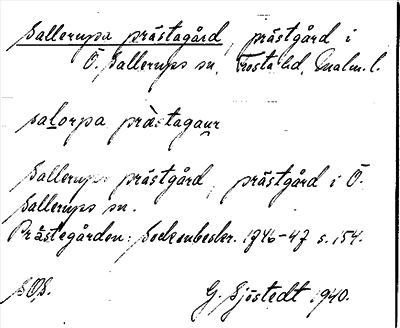 Sallerupa prästagård, prästgård i
Ö. Sallerups sn, Frosta hd, Malm. l.
salorpa prästagaur
Sallerups prästgård, prästgård i Ö.
Sallerups sn.
Prästegården: Sockenbeskr. 1746-47 s. 154.
SOS.
G. Sjöstedt 1940.